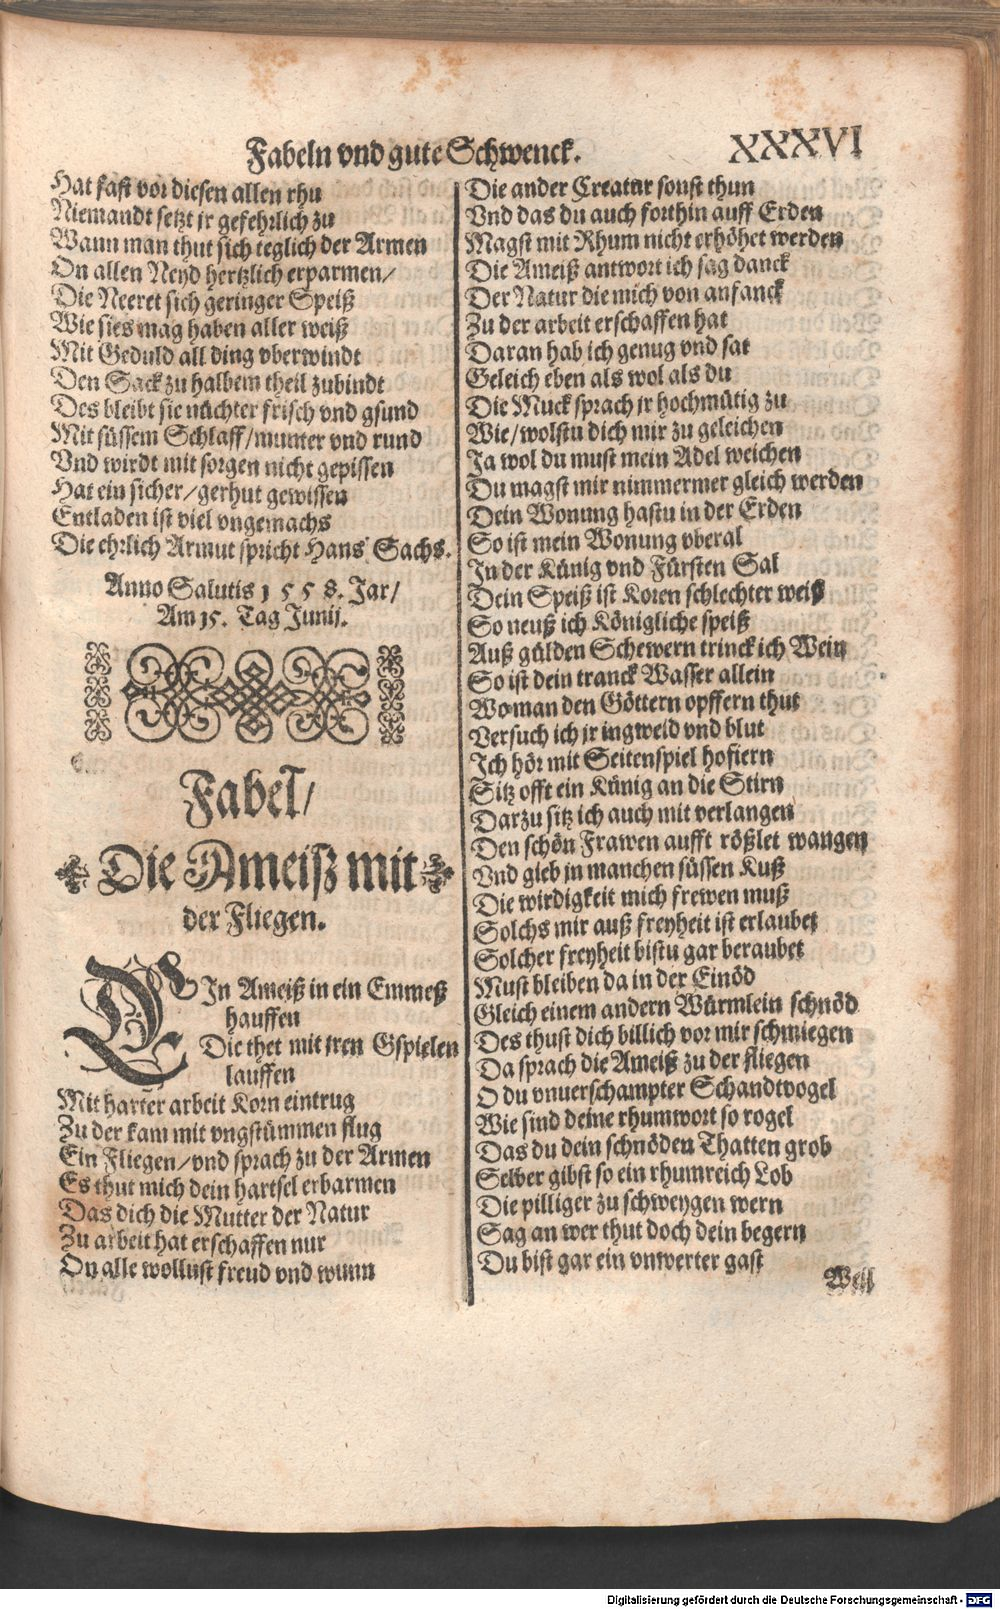 Fabeln vnd gute Schwenck. XXXVI
Hat fast vor diesen allen rhu
Niemandt setzt jr gefehrlich zu
Wann man thut sich teglich der Armen
On allen Neyd hertzlich erparmen/
Die Neeret sich geringer Speiß
Wie sies mag haben aller weiß
Mit Geduld all ding vberwindt
Den Sack zu halbem theil zubindt
Des bleibt sie nüchter frisch vnd gsund
Mit süssem Schlaff/munter vnd rund
Vnd wirdt mit sorgen nicht gepissen
Hat ein sicher/gerhut gewissen
Entladen ist viel vngemachs
Die ehrlich Armut spricht Hans Sachs.
Anno Salutis 1558. Jar/
Am 15. Tag Junij.
Fabel/
Die Ameisz mit
der Fliegen.
EIn Ameiß in ein Emmeß
hauffen
Die thet mit jren Gspielen
lauffen
Mit harter arbeit Korn eintrug
Zu der kam mit vngstümmen flug
Ein Fliegen/vnd sprach zu der Armen
Es thut mich dein hartsel erbarmen
Das dich die Mutter der Natur
Zu arbeit hat erschaffen nur
On alle wollust freud vnd wunn
Die ander Creatur sonst thun
Vnd das du auch forthin auff Erden
Magst mit Rhum nicht erhöhet werden
Die Ameiß antwort ich sag danck
Der Natur die mich von anfanck
Zu der arbeit erschaffen hat
Daran hab ich genug vnd sat
Geleich eben als wol als du
Die Muck sprach jr hochmütig zu
Wie/wolstu dich mir zu geleichen
Ja wol du must mein Adel weichen
Du magst mir nimmermer gleich werden
Dein Wonung hastu in der Erden
So ist mein Wonung vberal
In der Künig vnd Fürsten Sal
Dein Speiß ist Koren schlechter weiß
So neuß ich Königliche speiß
Auß gülden Schewern trinck ich Wein
So ist dein tranck Wasser allein
Wo man den Göttern opffern thut
Versuch ich jr ingweid vnd blut
Ich hör mit Seitenspiel hofiern
Sitz offt ein Künig an die Stirn
Darzu sitz ich auch mit verlangen
Den schön Frawen aufft rößlet wangen
Vnd gieb jn manchen süssen Kuß
Die wirdigkeit mich frewen muß
Solchs mir auß freyheit ist erlaubet
Solcher freyheit bistu gar beraubet
Must bleiben da in der Einöd
Gleich einem andern Würmlein schnöd
Des thust dich billich vor mir schmiegen
Da sprach die Ameiß zu der fliegen
O du vnuerschampter Schandtvogel
Wie sind deine rhumwort so rogel
Das du dein schnöden Thatten grob
Selber gibst so ein rhumreich Lob
Die pilliger zu schweygen wern
Sag an wer thut doch dein begern
Du bist gar ein vnwerter gast
Weil
Digitalisierung gefördert durch die Deutsche Forschungsgemeinschaft - DFG